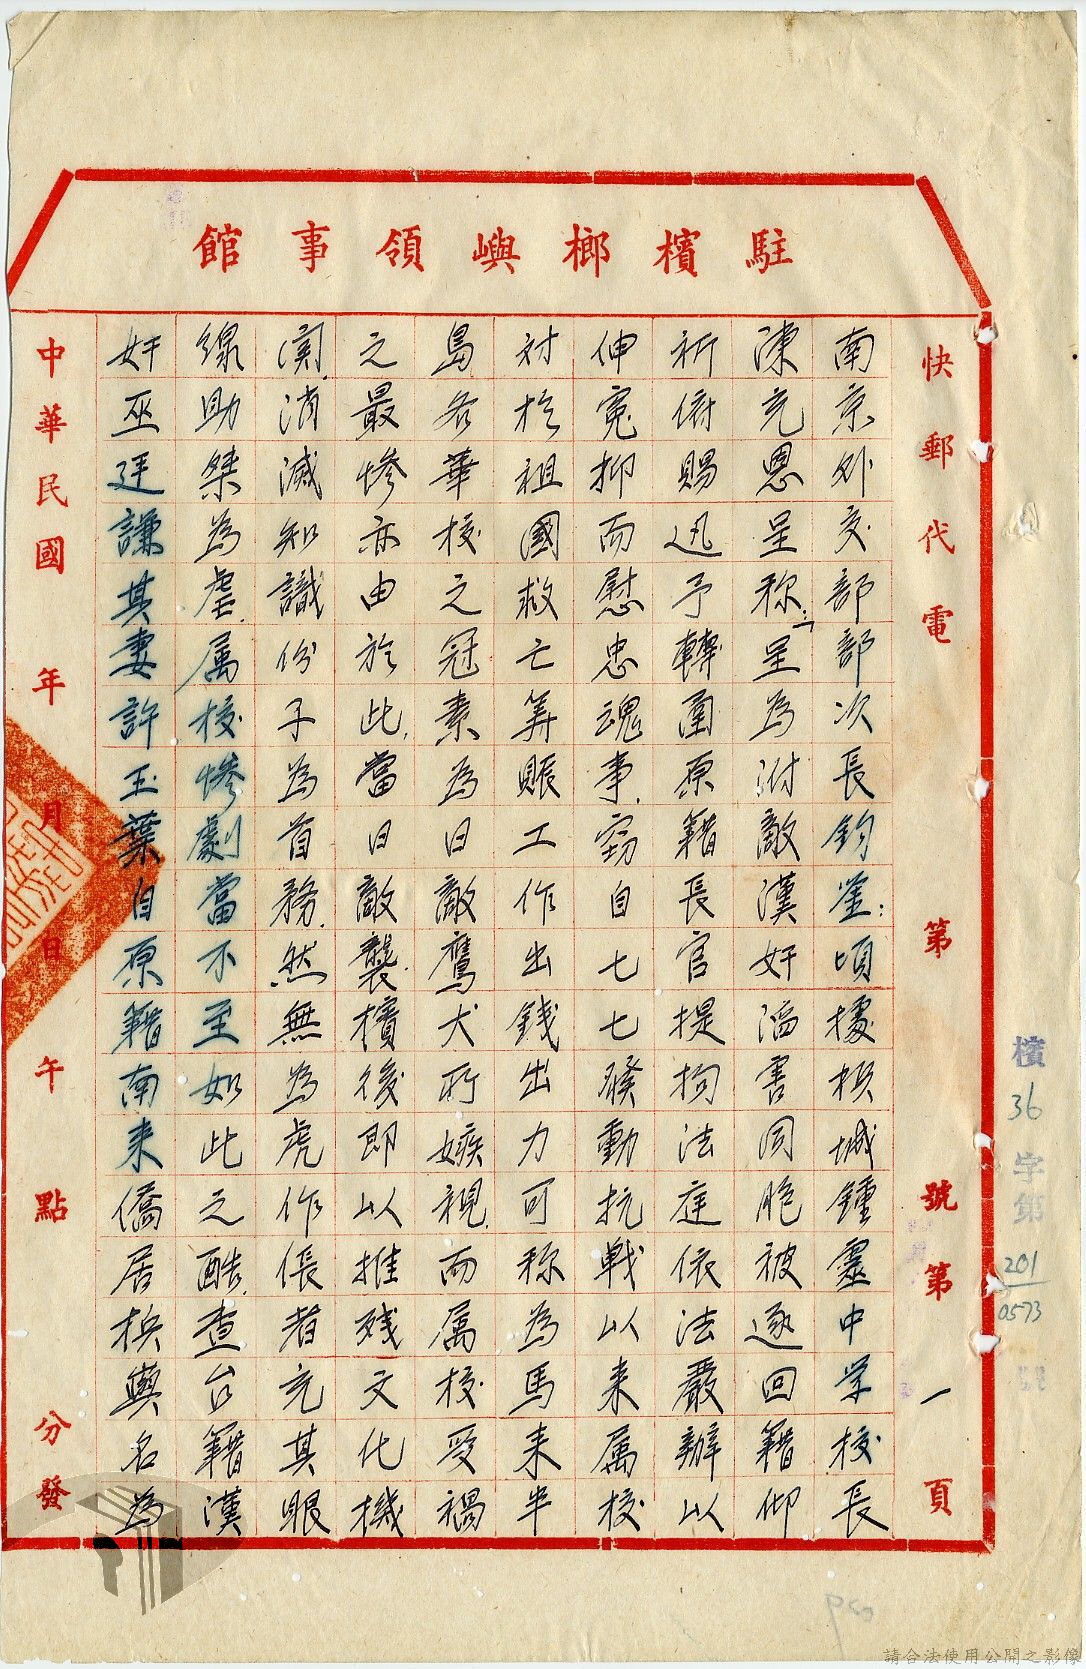 駐檳榔嶼領事館
快郵代電 第 號第一頁
南京外交部部次長鈞鑒：頃據梹城鍾靈中学校長
陳充恩呈称：「呈為附敵漢奸禍害同胞被逐回籍仰
祈俯賜迅予轉圅原籍長官提拘法庭依法嚴辦以
伸冤抑而慰忠魂事．窃自七七發動抗戦以来属校
对於祖國救亡筭賬工作出錢出力可称為馬来半
島各華校之冠素為日敵鷹犬所嫉視．而属校受禍
之最慘亦由於此．當日敵襲檳後即以摧残文化機
関．消滅知識份子為首務．然無為虎作倀者充其眼
線助桀為虐．属校慘劇當不至如此之酷．查台籍漢
奸巫廷謙其妻許玉葉自原籍南来僑居梹與名為
中華民國 年 月 日 午 點 分發
檳36字第
201
0573
P50
請合法使用公開之影像